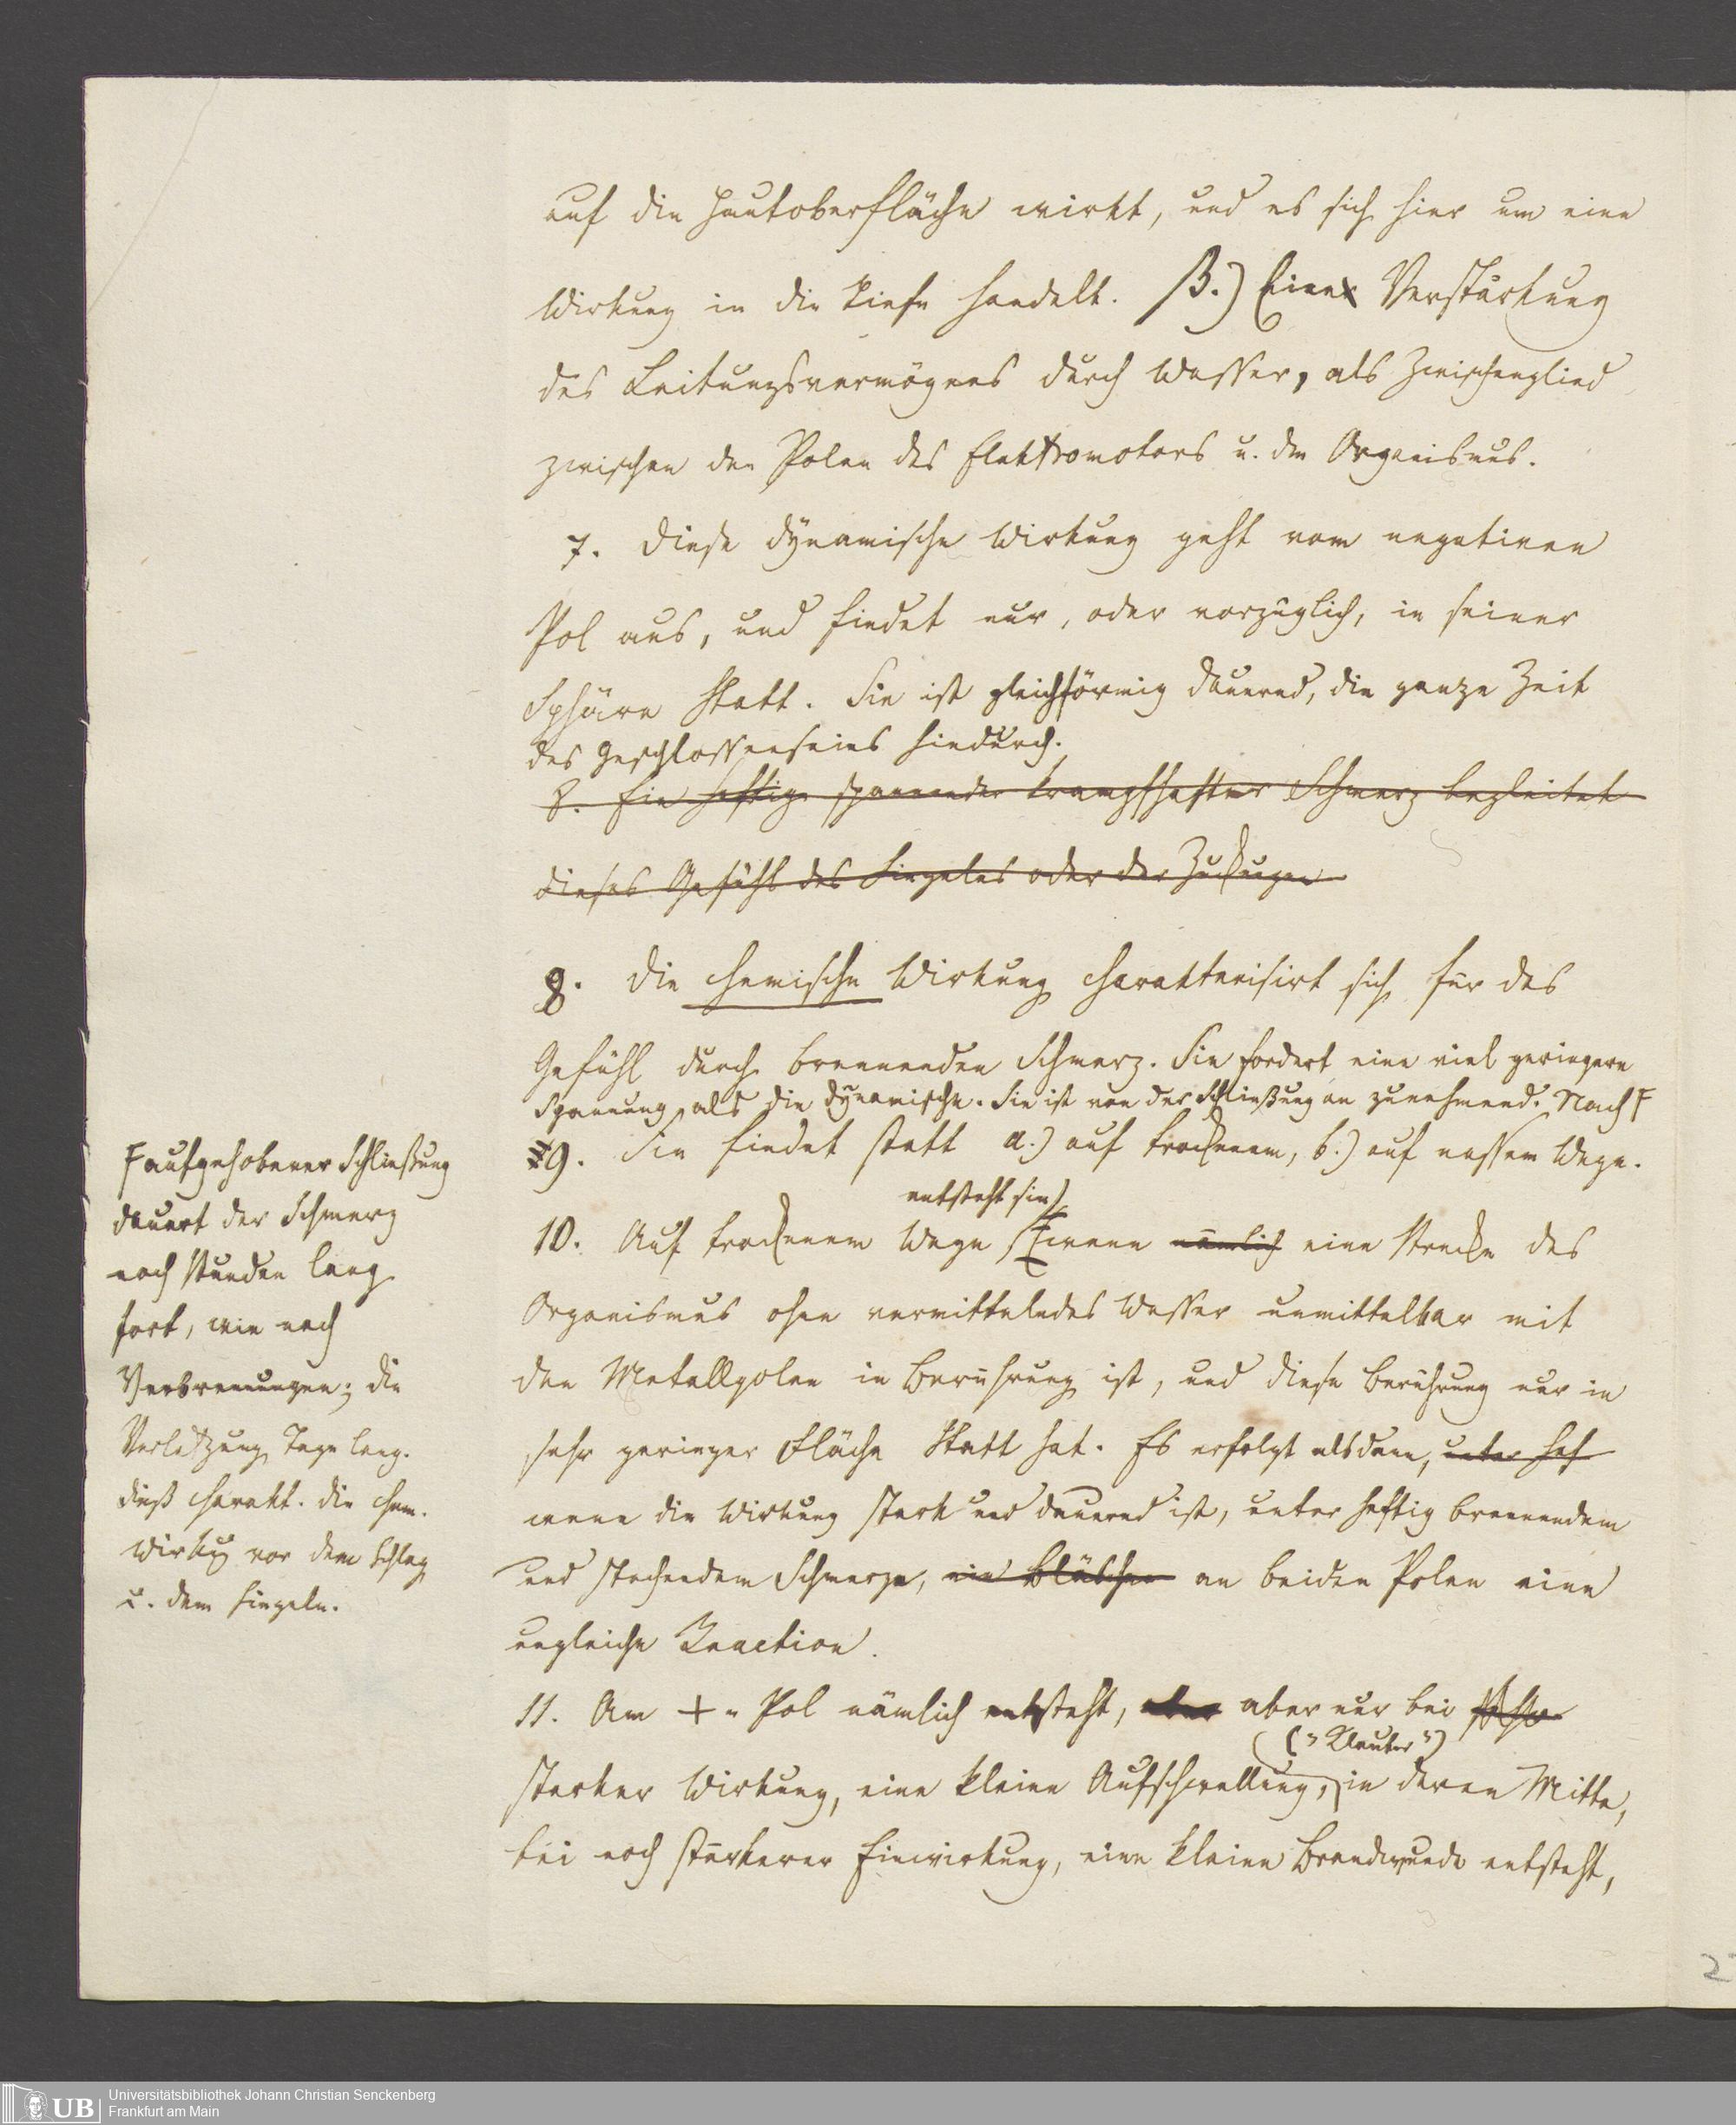 auf die Hautoberfläche wirkt, und es sich hier um eine
Wirkung in die Tiefe handelt. β.) Eine Verstärkung
des Leitungsvermögens durch Wasser, als Zwischenglied
zwischen den Polen des Elektromotors u. dem Organismus.
7. Diese dÿnamische Wirkung geht vom negativen
Pol aus, und findet nur, oder vorzüglich, in seiner
Sphäre Statt. Sie ist gleichförmig dauernd, die ganze Zeit
des Geschlossenseins hindurch.
8. Ein heftiger spannender krampfhafter Schmerz begleitet
dieses Gefühl des Singelns oder der Zuckungen
8. Die chemische Wirkung charakterisirt sich für das
Gefühl durch brennenden Schmerz. Sie fordert eine viel geringere
Spannung, als die dÿnamische. Sie ist von der Schließung an zunehmend. Nach F
9. Sie findet statt a.) auf trocknem, b.) auf nassem Wege.
entsteht sie,
10. Auf trocknem Wege wenn nämlich eine Strecke des
Organismus ohne vermittelndes Wasser unmittelbar mit
den Metallpolen in Berührung ist, und diese Berührung nur in
sehr geringer Fläche Statt hat. Es erfolgt alsdann, unter hef
wenn die Wirkung stark und dauernd ist, unter heftig brennendem
und stechendem Schmerze, ein Bläschen an beiden Polen eine
ungleiche Reaction.
11. Am + - Pol nämlich entsteht, aber aber nur bei
("Klauter")
starker Wirkung, eine kleine Aufschwellung, in deren Mitte,
bei noch stärkerer Einwirkung, eine kleine Brandwunde entsteht,
F aufgehobener Schließung
dauert der Schmerz
noch Stunden lang
fort, wie nach
Verbrennungen; die
Verletzung Tage lang.
dieß charakt. die chem.
Wirkg vor dem Schlag
u. dem Singeln.
2
UB
Universitätsbibliothek Johann Christian Senckenberg
Frankfurt am Main